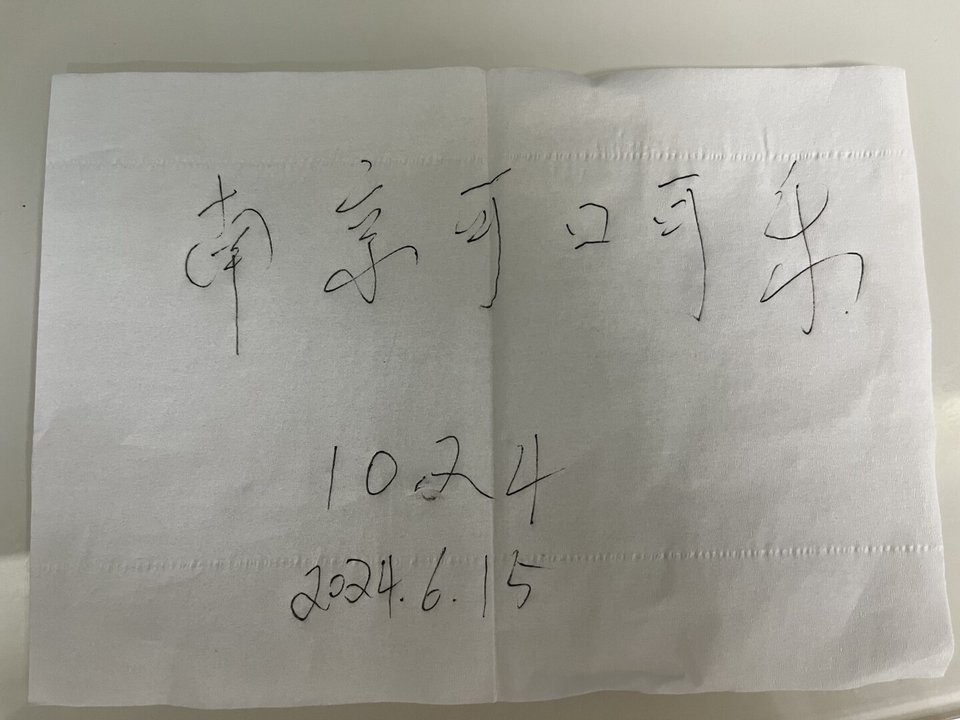 南京可口可乐
1024
2024.6.15